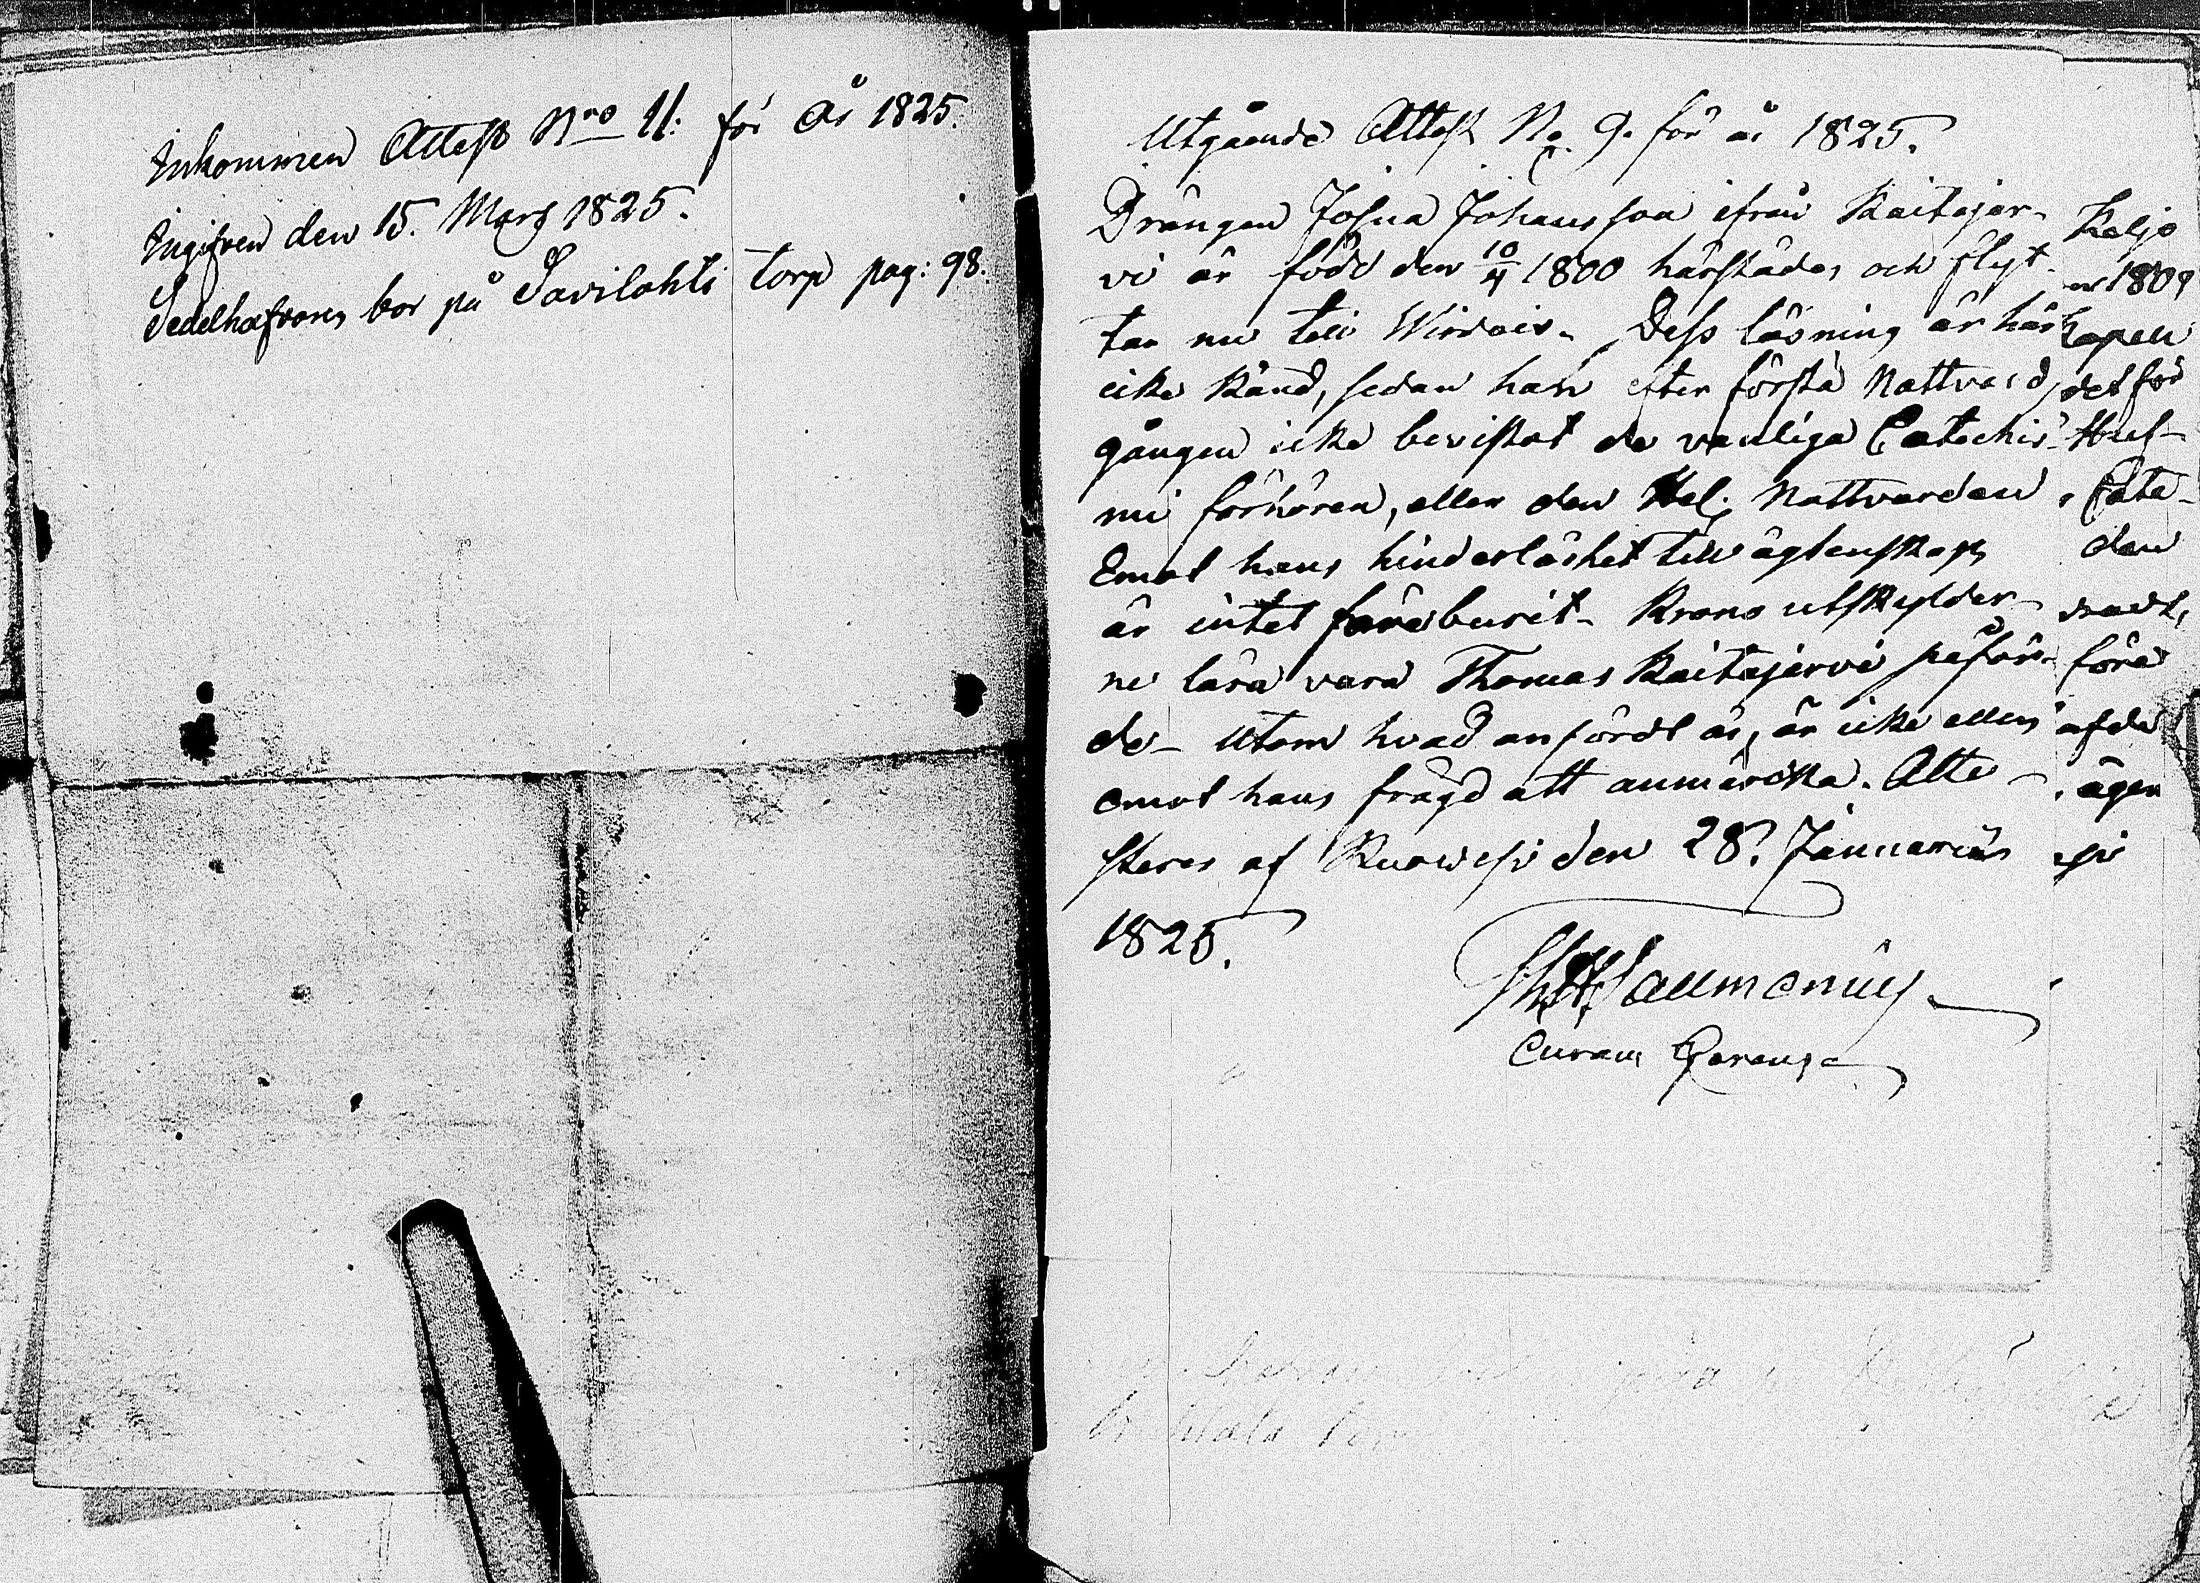 Inkommen Attest Nro 11: för År 1825.
Ingifven den 15. Mars 1825.
Sedelhafvaren bor på Savilahti torp pag: 98.
Utgående Attest No. 9. för år 1825.
Drängen Josua Johansson ifrån Kaitajär-
vi är född den 10/4 1800 härstädes och flyt-
tar nu till Wirdois. Dess läsning är här
icke känd, sedan han efter första Nattvard
gången icke bevistat de vanliga Catechis-
mi förhören, eller den Hel. Nattvarden
Emot hans hinderlöshet till ägtenskap
är intetföreburit. Krono utskylder-
ne lära vara Thomas Kaitajärvi påför-
de. Utom hvad anfördt är, är icke eller
emot hans frägd att anmärcka. Atte-
steres af Ruowesi den 28. Januarius
1825.
Curam Gerens
Keljo
1809
Capell
det för
Cate-
den
före
af de
ägen